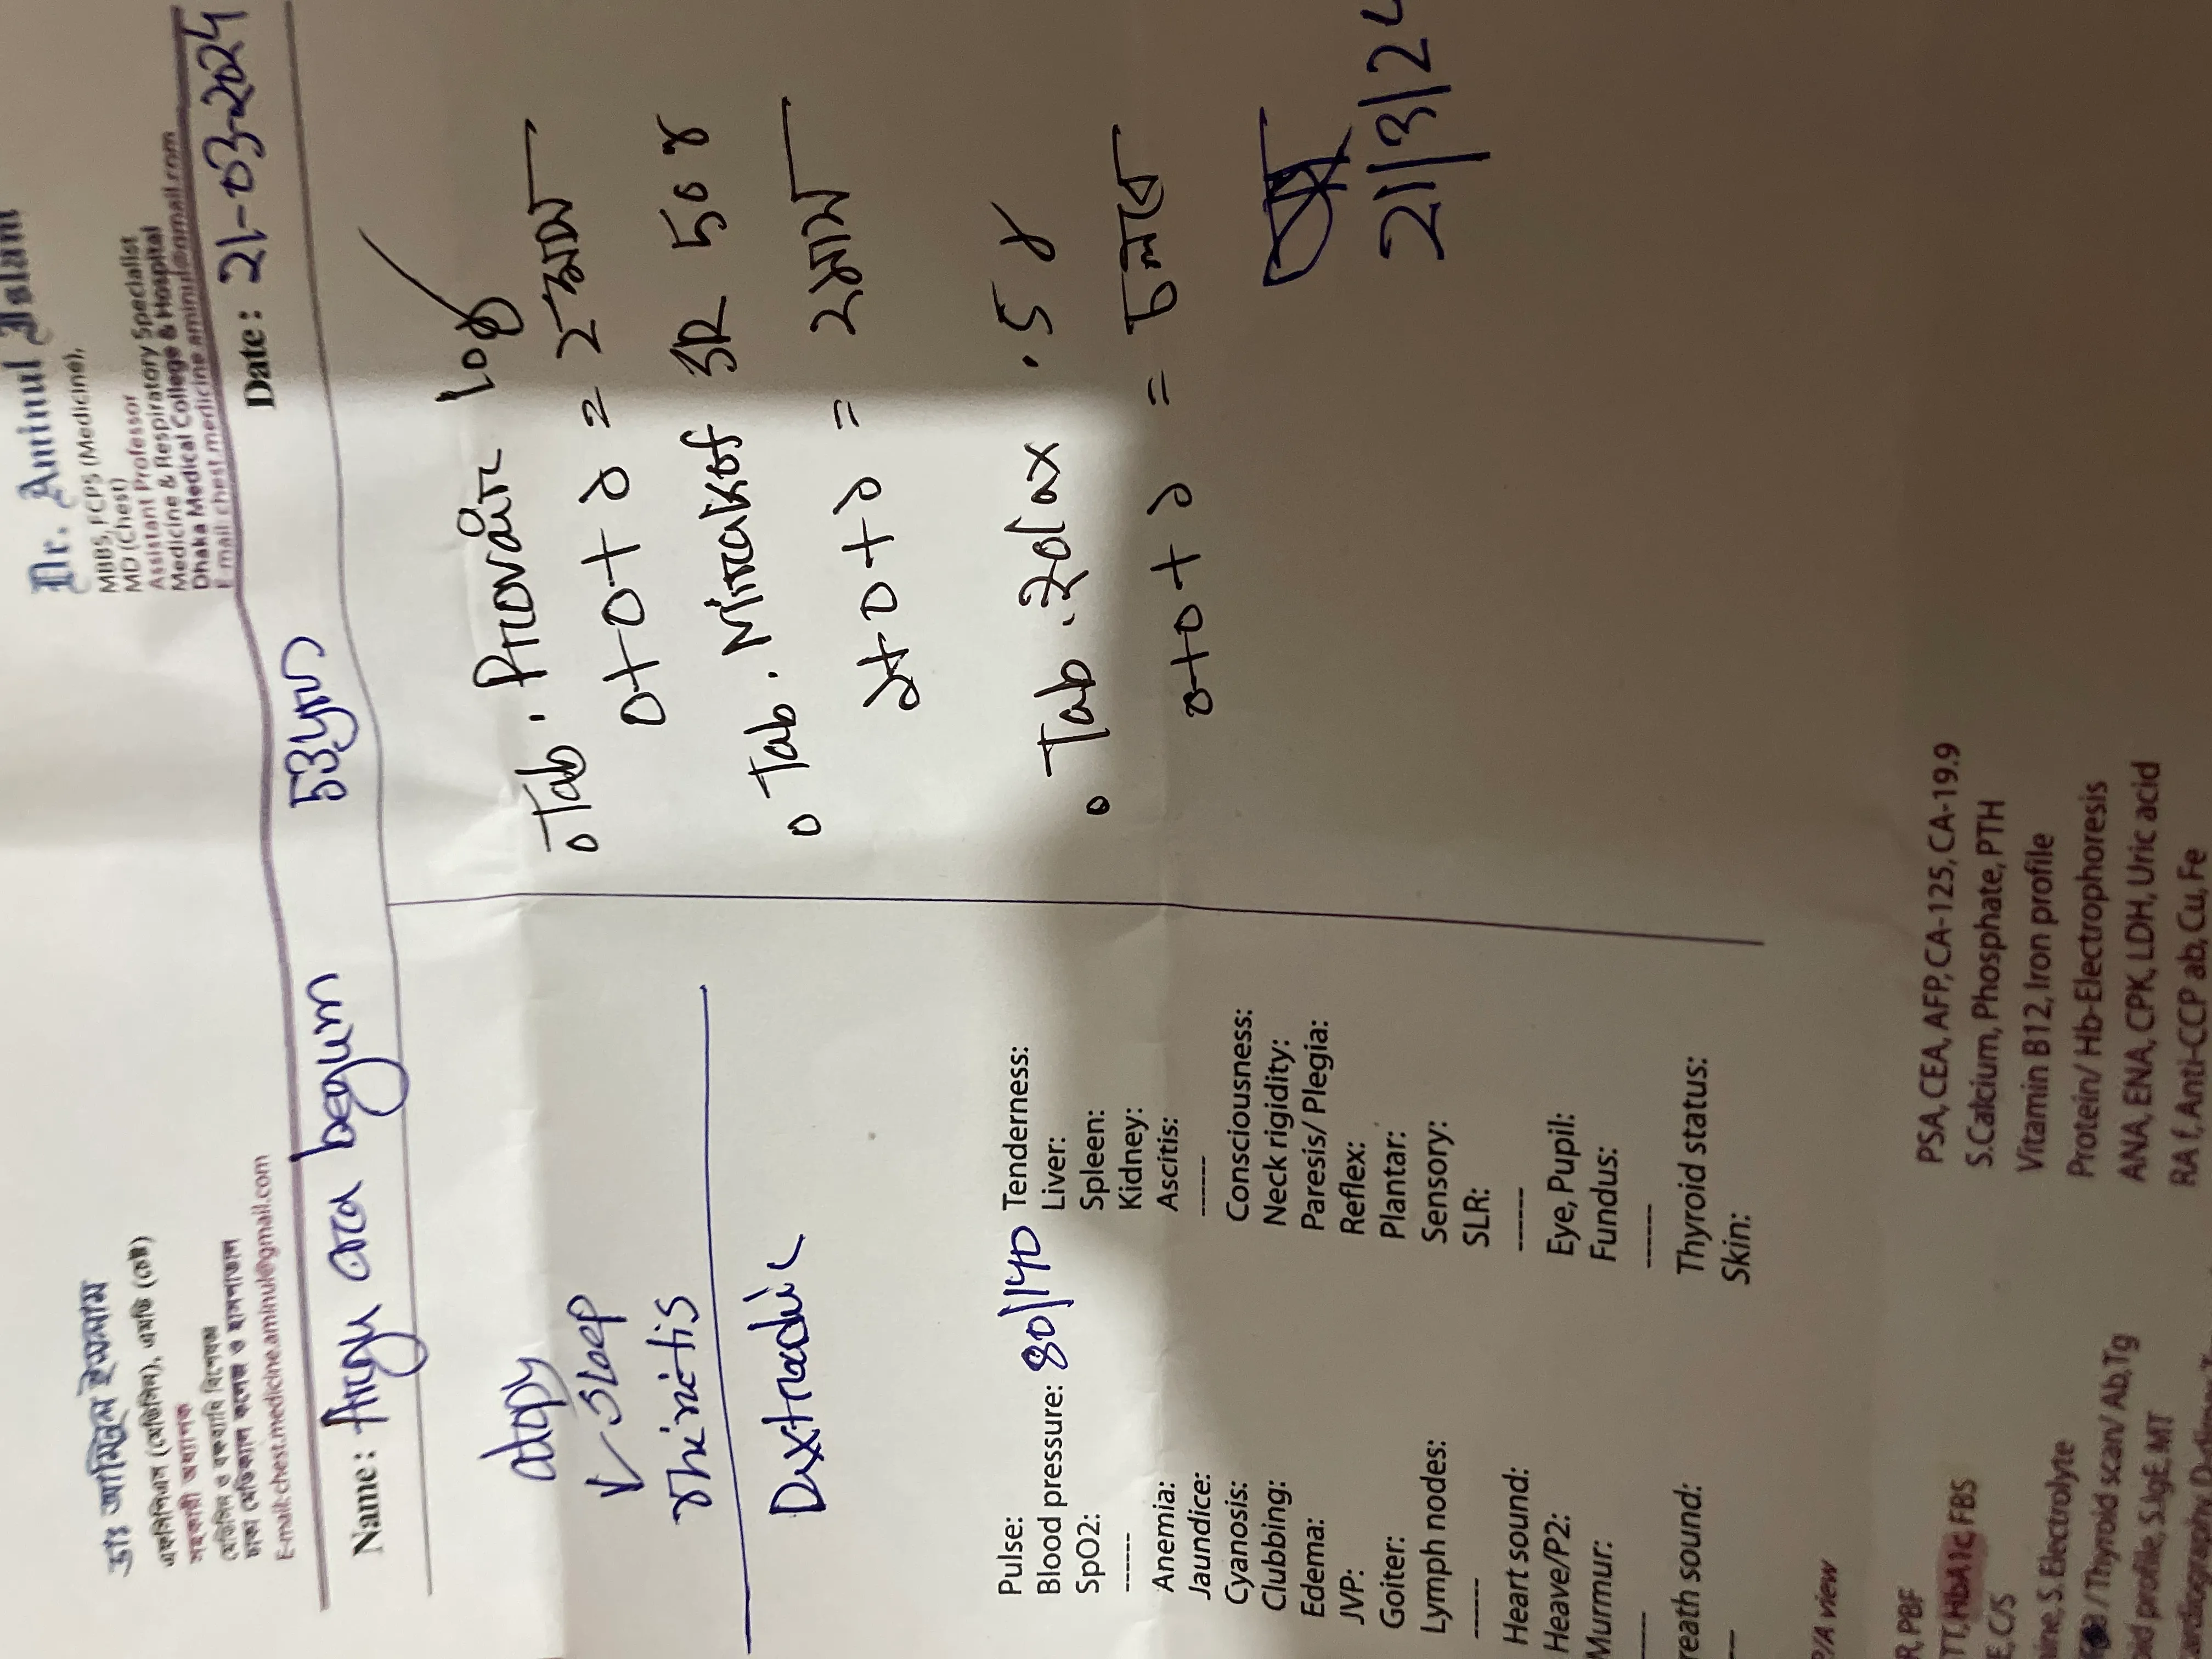 ডাঃ আমিনুল ইসলাম
এফসিপিএস (মেডিসিন), এমডি (চেষ্ট)
সহকারী অধ্যাপক
মেডিসিন ও বক্ষব্যাধি বিশেষজ্ঞ
ঢাকা মেডিক্যাল কলেজ ও হাসপাতাল
E-mail:chest.medicine.aminul@gmail.com
Dr. Aminul Islam
MBBS, FCPS (Medicine),
MD (Chest)
Assistant Professor
Medicine & Respiratory Specialist
Dhaka Medical College & Hospital
E-mail: chest.medicine.aminul@gmail.com
Name: ara begum 53yrs Date: 21-03-2024
atopy
↓ sleep
rhinitis
Tab. Provair 10
0+0+১ = 2 মাস
Tab. SR 50
১+0+১ = ২মাস
Tab. .5
0+0+১ = চলবে
21/3/2
Pulse:
Blood pressure: 80/140
SpO2:
------
Anemia:
Jaundice:
Cyanosis:
Clubbing:
Edema:
JVP:
Goiter:
Lymph nodes:
------
Heart sound:
Heave/P2:
Murmur:
reath sound:
Tenderness:
Liver:
Spleen:
Kidney:
Ascitis:
------
Consciousness:
Neck rigidity:
Paresis/ Plegia:
Reflex:
Plantar:
Sensory:
SLR:
------
Eye, Pupil:
Fundus:
------
Thyroid status:
Skin:
P/A view
R, PBF
TT, HbA1c, FBS
E, C/S
nine, S. Electrolyte
/ Thyroid scan/ Ab, Tg
pid profile, S.IgE, MT
PSA, CEA, AFP, CA-125, CA-19.9
S.Calcium, Phosphate, PTH
Vitamin B12, Iron profile
Protein/ Hb-Electrophoresis
ANA, ENA, CPK, LDH, Uric acid
RA f, Anti-CCP ab, Cu, Fe